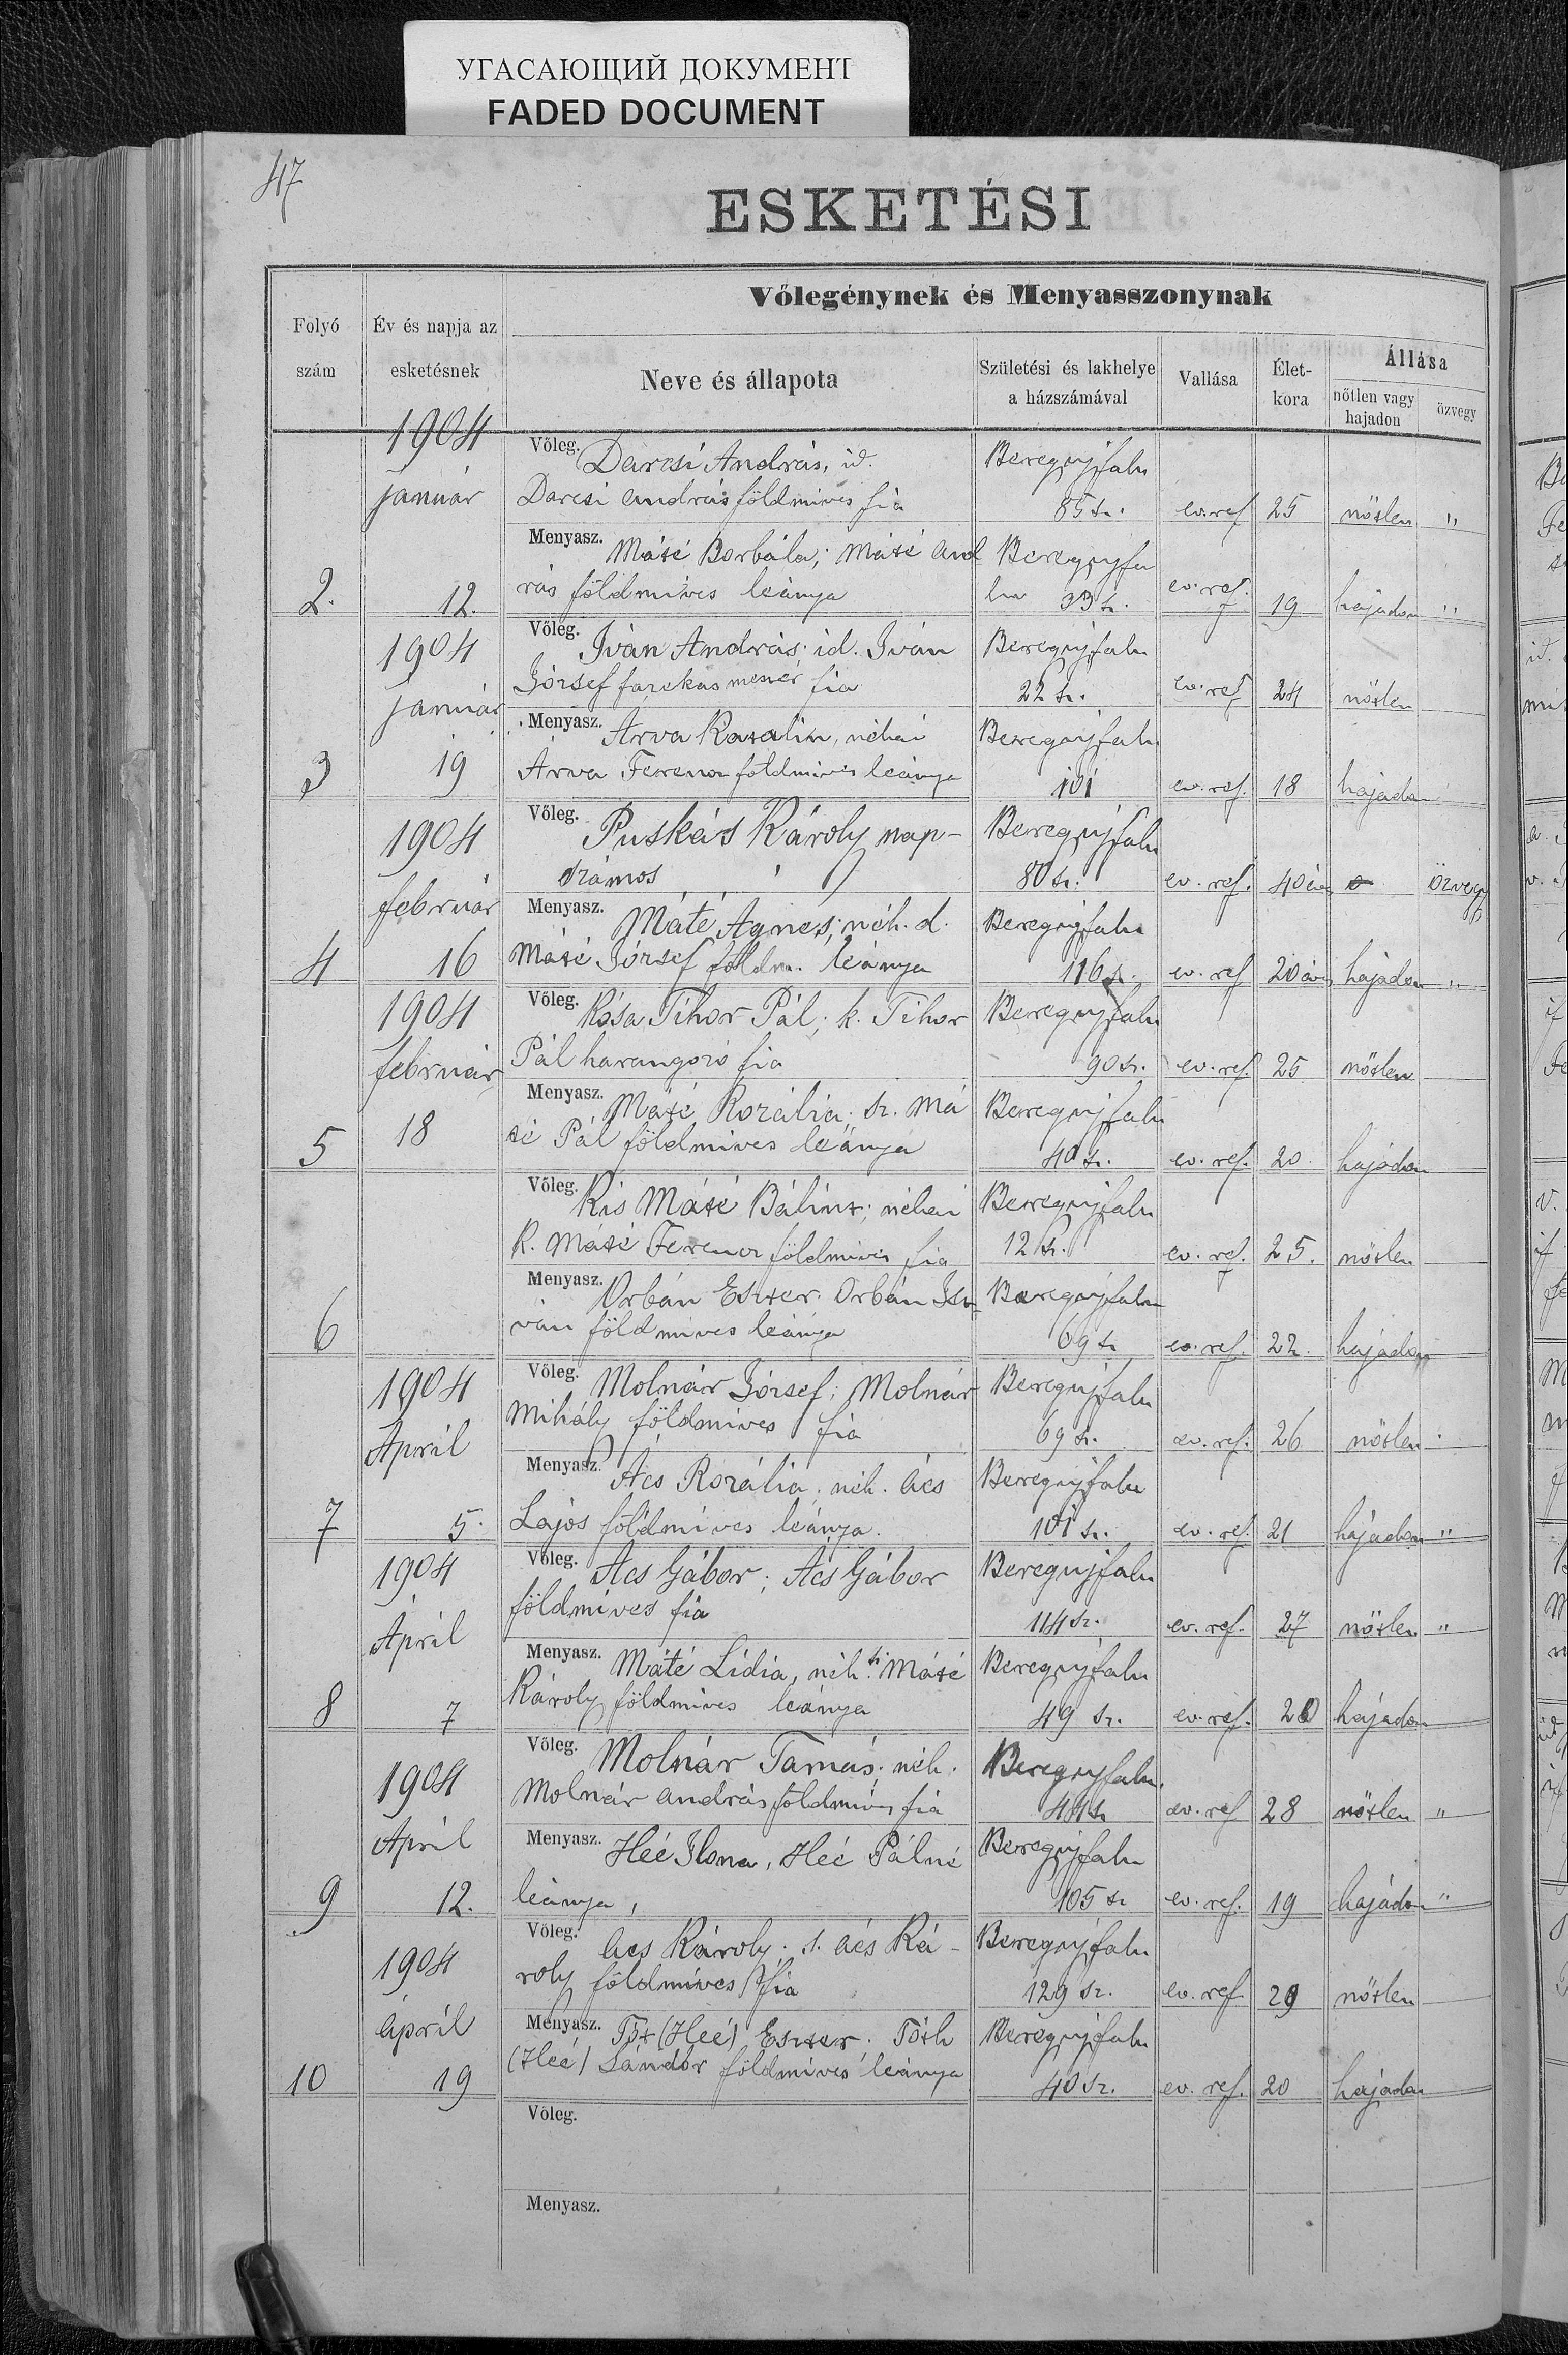 УГАСАЮЩИЙ ДОКУМЕНТ
FADED DOCUMENT
47
ESKETÉSI
Vőlegénynek és Menyasszonynak
Folyó szám
Év és napja az esketésnek
Neve és állapota
Születési és lakhelye a házszámával
Vallása
Élet-kora
Állása
nőtlen vagy hajadon
özvegy
1904
Vőleg. Darcsi András, id. Beregujfalu
január Darcsi András földmives fia 85 sz. ev. ref 25 nőtlen "
Menyasz. Máté Borbála; Máté And Beregujfa
2. 12. rás földmives leánya lu 33 sz. ev. ref. 19 hajadon "
1904 Vőleg. Iván András; id. Iván Beregujfalu
január József farekas fia 22 sz. ev. ref 24 nőtlen
Menyasz. Árva Katalin, néhai Beregujfalu
3 19 Árva Ferencz földmives leánya 101 ev. ref. 18 hajadon
1904 Vőleg. Puskás Károly nap- Beregujfalu
február számos 80 sz. ev. ref. 40 éves özvegy
Menyasz. Máté Agnes; néh. d. Beregujfalu
4 16 Máté József földm. leánya 116 sz. ev. ref 20 éves hajadon "
1904 Vőleg. Kósa Tihor Pál; k. Tihor Beregujfalu
február Pál harangozó fia 90 sz. ev. ref. 25 nőtlen
Menyasz. Máté Rozália; sz. Má Beregujfalu
5 18 té Pál földmives leánya 40 sz. ev. ref. 20 hajadon
Vőleg. Kis Máté Bálint; néhai Beregujfalu
K. Máté Ferencz földmives fia 12 sz. ev. ref. 25. nőtlen
Menyasz. Orbán Eszter Orbán Ist Beregujfalu
6 ván földmives leánya 69 sz ev. ref. 22. hajadon
1904 Vőleg. Molnár József; Molnár Beregujfalu
Április Mihály földmives fia 69 sz. ev. ref. 26 nőtlen
Menyasz. Ács Rozália; néh. Ács Beregujfalu
7 5. Lajos földmives leánya. 101 sz. ev. ref. 21 hajadon "
1904 Vőleg. Ács Gábor; Ács Gábor Beregujfalu
Ápril földmives fia 114 sz. ev. ref. 27 nőtlen "
Menyasz. Máté Lídia, néh. Máté Beregujfalu
8 7 Károly földmives leánya 49 sz. ev. ref. 20 hajadon
1904 Vőleg. Molnár Tamás; néh. Beregujfalu
Ápril Molnár András földmives fia 44 sz ev. ref 28 nőtlen "
Menyasz. Heé Ilona, Heé Pálné Beregujfalu
9 12. leánya, 105 sz ev. ref. 19 hajadon "
1904 Vőleg. Ács Károly; s. Ács Ká- Beregujfalu
ápril roly földmives fia 129 sz. ev. ref 29 nőtlen
Menyasz. Tót (Heé) Eszter; Tóth Beregujfalu
10 19 (Heé) Sándor földmives leánya 40 sz. ev. ref. 20 hajadon
Vőleg.
Menyasz.